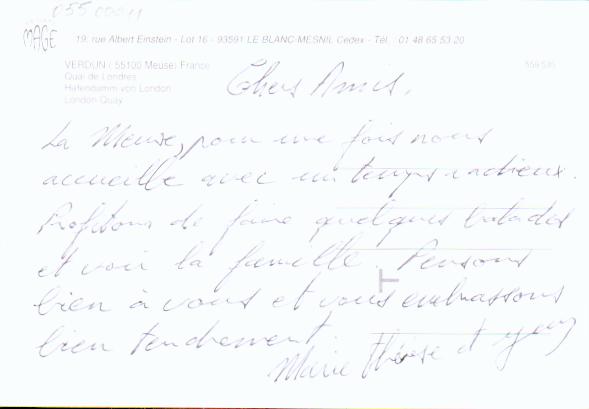 055 00011
MAGE
19, rue Albert Einstein - Lot 16 - 93591 LE BLANC-MESNIL Cedex - Tél. : 01 48 65 53 20
VERDUN (55100 Meuse) France
Quai de Londres
Hafendamm von London
London Quay
Chers Amis,
La Meuse, pour une fois nous
accueille avec un temps radieux.
Profitons de faire quelques balades
et voir la famille. Pensons
bien à vous et vous embrassons
bien tendrement.
Marie Thérèse et